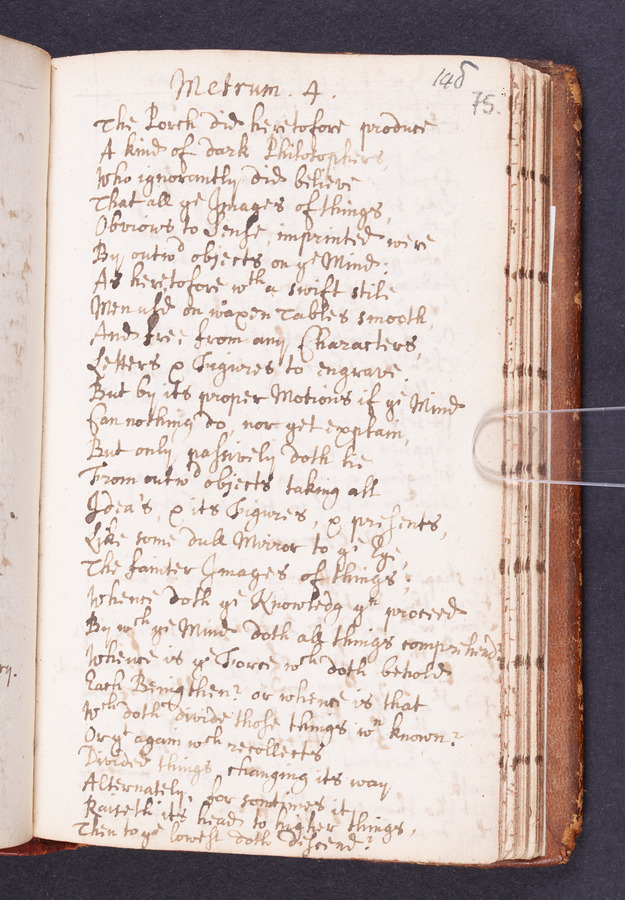 146
75.
Metrum. 4.
The Porch did heretofore produce
A kind of dark Philosophers,
Who ignorantly did believe
That all ye Images of things,
Obvious to Sense, imprinted were
By outwd objects on ye Mind:
As heretofore wth a swift stile
Men us'd on waxen Tables smooth,
And free from any Characters,
Letters & Figures to engrave.
But by its proper Motions if ye Mind
Can nothing do, nor yet explain,
But only passively doth lie
From outwd objects taking all
Idea's, & its Figures, & presents,
Like some dull Mirror to ye Eye,
The fainter Images of things;
Whence doth ye Knowledg yn proceed
By wch ye Mind doth all things comprehend
Whence is ye Force wch doth behold
Each Being then? or whence is that
Wch doth divide those things wn known?
Or yt again wch recollects
Divided things changing its way
Alternately, for sometimes it
Raiseth its head to higher things,
Then to ye lowest doth descend?